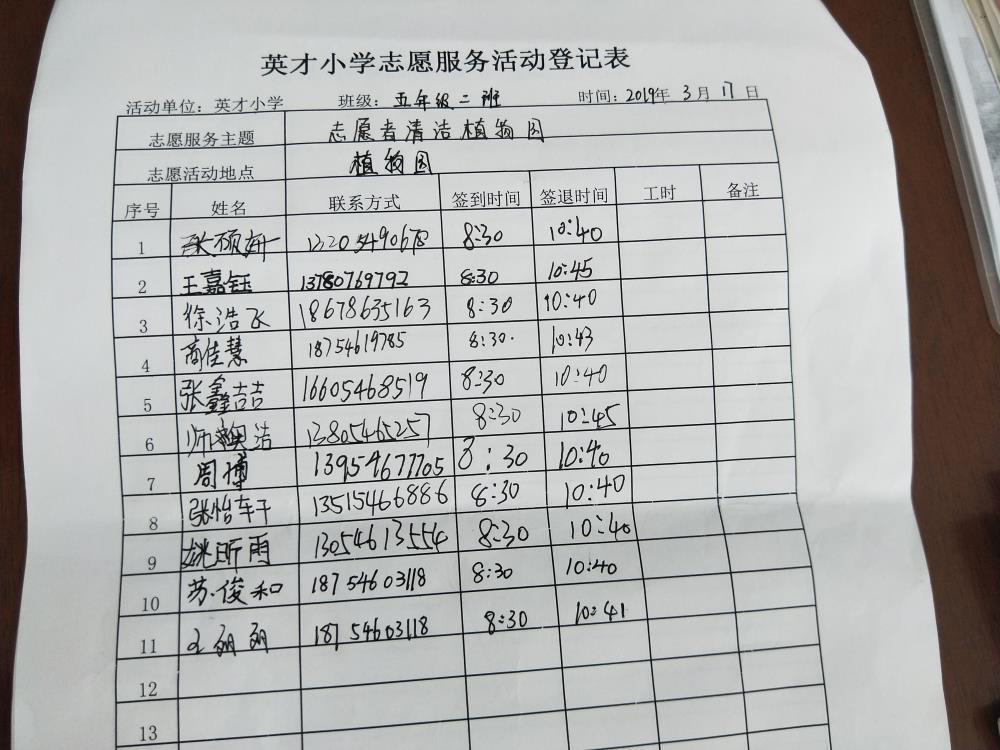 英才小学志愿服务活动登记表
活动单位：英才小学 班级：五年级二班 时间：2019年3月17日
志愿服务主题 志愿者清洁植物园
志愿活动地点 植物园
序号 姓名 联系方式 签到时间 签退时间 工时 备注
1 张硕妍 8:30 10:40
2 王嘉钰 13780769792 8:30 10:45
3 徐浩飞 18678635163 8:30 10:40
4 商佳慧 18754619785 8:30 10:43
5 张鑫喆 16605468519 8:30 10:40
6 13805465257 8:30 10:45
7 周博 13954677705 8:30 10:40
8 张怡轩 13515466886 8:30 10:40
9 姚昕雨 13054613554 8:30 10:40
10 苏俊和 18754603118 8:30 10:40
11 王丽丽 18754603118 8:30 10:41
12
13